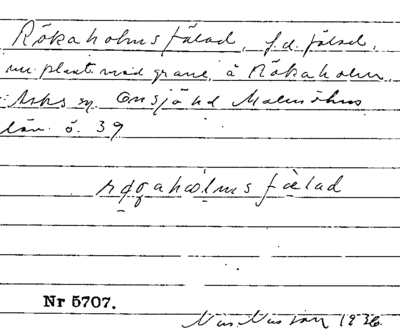 Rökaholms fälad, f.d. fälad,
nu plant. med gran, å Rökaholm,
Asks sn. Onsjö hd Malmöhus
län. ö. 39
røqahɷlms fælad
Nr 5707.
Nils Nilsson 1936.